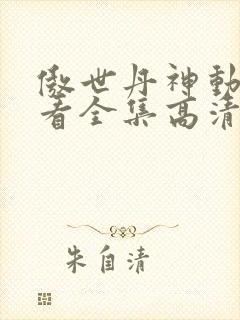 傲世丹神動
看全集高清
朱自清